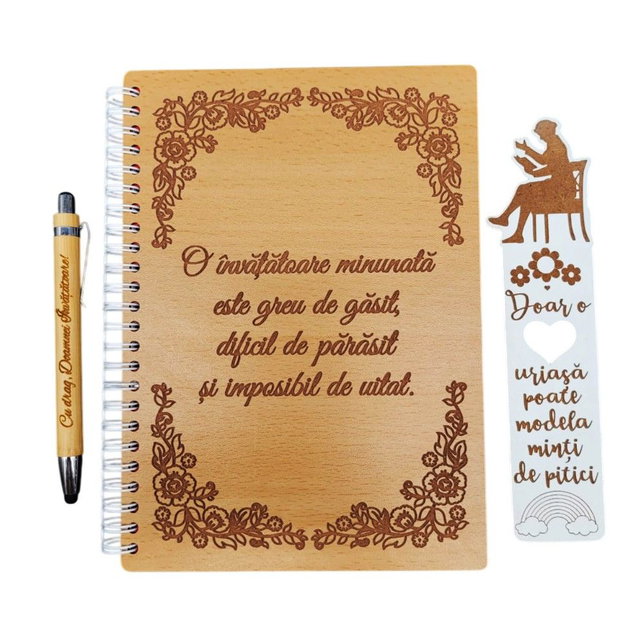 Cu drag, Doamnei Învățătoare!
O învățătoare minunată
este greu de găsit,
dificil de părăsit
și imposibil de uitat.
Doar o
uriașă
poate
modela
minți
de pitici